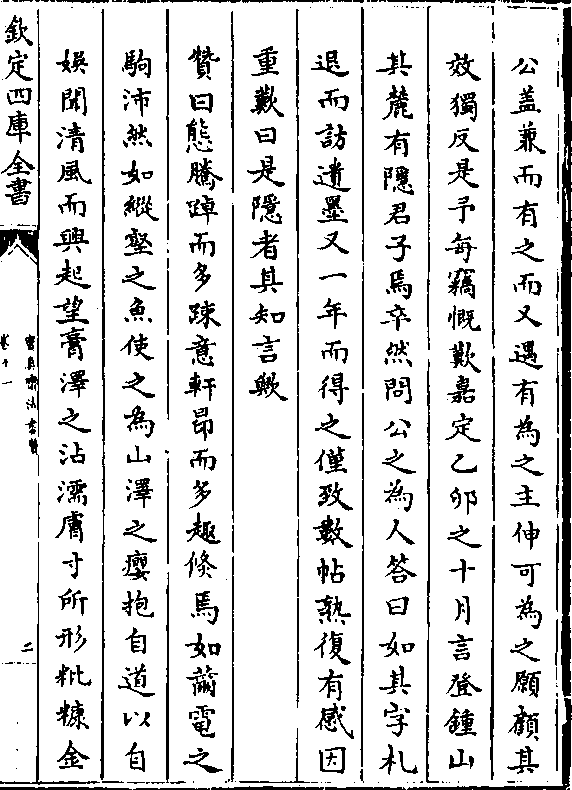 公蓋兼而有之而又遇有為之主伸可為之願顧其
效獨反是予每竊慨歎嘉定乙卯之十月言登鍾山
其麓有隱君子焉卒然問公之為人答曰如其字札
退而訪遺墨又一年而得之僅致數帖熟復有感因
重歎曰是隱者其知言歟
贊曰態騰踔而多疎意軒昂而多趣倏焉如躡電之
駒沛然如縱壑之魚使之為山澤之癯抱自道以自
娛聞清風而興起望膏澤之沾濡膚寸所形粃糠金
欽定四庫全書
寶真齋法書贊
卷十一
二